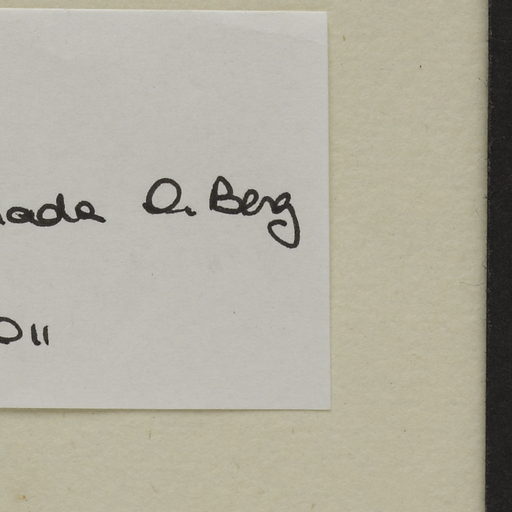 ada O. Berg
011